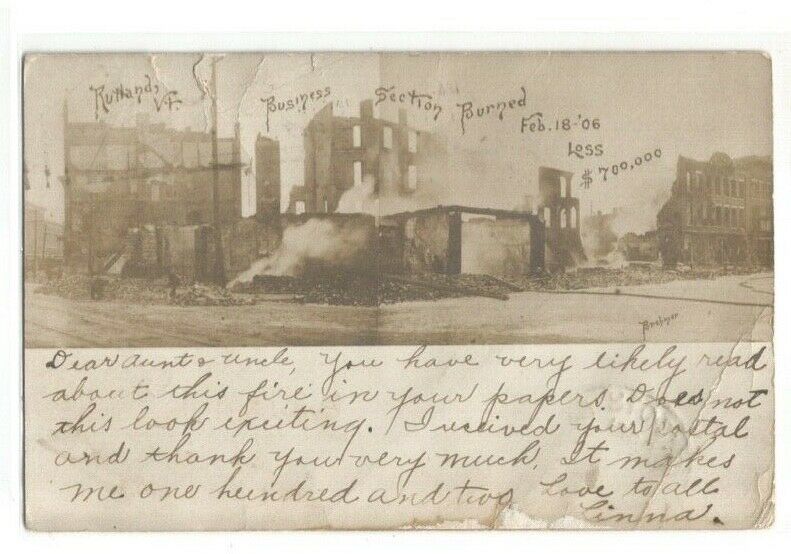 Rutland, Vt. Business Section Burned
Feb. 18-'06
Loss
$700,000
Brehmer
Dear Aunt & Uncle, You have very likely read
about this fire in your papers. Does not
this look exciting. I received your postal
and thank you very much. It makes
me one hundred and two. Love to all
Linna.